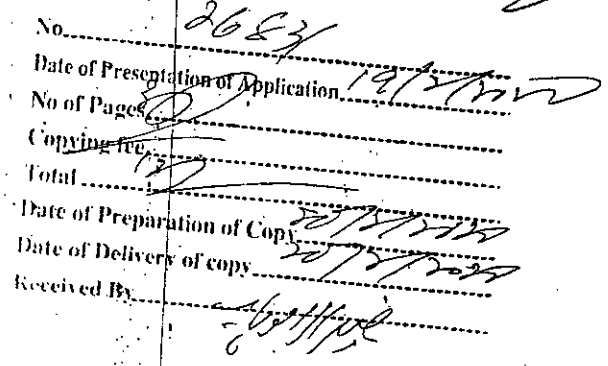 No. 2683/
Date of Presentation of Application 19/2/2020
No of Pages
Copying fee
Total
Date of Preparation of Copy 20/2/2020
Date of Delivery of copy 20/2/2020
Received By